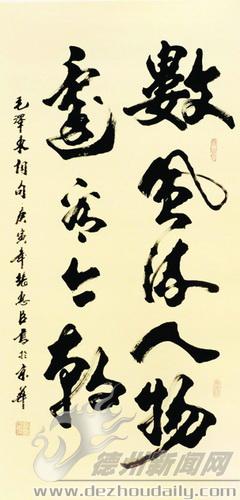 數風流人物
還看今朝
毛澤東詞句庚寅年張惠臣書於京華
德州新闻网
www.dezhoudaily.com